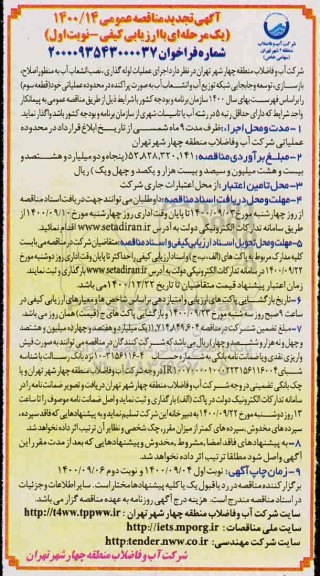 شرکت آب و فاضلاب
منطقه ۴ شهر تهران
(سهامی خاص)
آگهی تجدید مناقصه عمومی ۱۴۰۰/۱۴
(یک مرحله‌ای با ارزیابی کیفی – نوبت اول)
شماره فراخوان ۲۰۰۰۰۹۳۵۴۳۰۰۰۰۳۷
شرکت آب و فاضلاب منطقه چهار شهر تهران در نظر دارد اجرای عملیات لوله گذاری، نصب انشعاب آب به منظور اصلاح،
بازسازی، توسعه و جابجایی شبکه توزیع آب و انشعاب آب به صورت پراکنده در محدوده عملیاتی خود (قطعه سوم)
را بر اساس فهرست بهای سال ۱۴۰۰ سازمان برنامه و بودجه کشور با شرایط ذیل از طریق مناقصه عمومی به پیمانکار
واجد شرایط که دارای حداقل رتبه ۵ در رشته آب یا تاسیسات شهری از سازمان برنامه و بودجه کشور باشد واگذار نماید.
۱ – مدت و محل اجراء: ظرف مدت ۹ ماه شمسی از تاریخ ابلاغ قرارداد در محدوده
عملیاتی شرکت آب و فاضلاب منطقه چهار شهر تهران
۲ – مبلغ برآوردی مناقصه: ۵۲,۸۲۸,۳۲۰,۱۴۱ (پنجاه و دو میلیارد و هشتصد و
بیست و هشت میلیون و سیصد و بیست هزار و یکصد و چهل و یک) ریال
۳ – محل تامین اعتبار: از محل اعتبارات جاری شرکت
۴ – مهلت و محل دریافت اسناد مناقصه: داوطلبان می توانند جهت دریافت اسناد مناقصه
از روز چهارشنبه مورخ ۱۴۰۰/۰۹/۰۳ تا پایان وقت اداری روز چهارشنبه مورخ ۱۴۰۰/۰۹/۱۰ از
طریق سامانه تدارکات الکترونیکی دولت به آدرس www.setadiran.ir اقدام نمائید.
۵ – مهلت و محل تحویل اسناد ارزیابی کیفی و اسناد مناقصه: متقاضیان شرکت در مناقصه می بایست
کلیه مدارک مربوط به پاکت های (الف، ب، ج) و اسناد ارزیابی کیفی را حداکثر تا پایان وقت اداری روز دوشنبه مورخ
۱۴۰۰/۰۹/۲۲ در سامانه تدارکات الکترونیکی دولت به آدرس www.setadiran.ir بارگذاری و ثبت نمایند.
زمان اعتبار پیشنهاد قیمت متقاضیان تا تاریخ ۱۴۰۰/۱۲/۲۲ می باشد.
۶ – تاریخ بازگشایی پاکت های ارزیابی و امتیازدهی بر اساس شاخص ها و معیارهای ارزیابی کیفی در
ساعت ۹ صبح روز سه شنبه مورخ ۱۴۰۰/۰۹/۲۳ و بازگشایی پاکت های ج (قیمت) همان روز می باشد.
۷ – مبلغ تضمین شرکت در مناقصه: ۱,۷۱۴,۸۴۹,۶۰۴ (یک میلیارد و هفتصد و چهارده میلیون و هشتصد
و چهل و نه هزار و ششصد و چهار) ریال می باشد که شرکت کنندگان در مناقصه می توانند به صورت فیش
واریزی نقدی و یا ضمانت نامه بانکی به شماره حساب نزد بانک رسالت با شناسه
شبای شرکت آب و فاضلاب منطقه چهار شهر تهران و یا
چک بانکی تضمینی در وجه شرکت آب و فاضلاب منطقه چهار شهر تهران دریافت و تصویر ضمانت نامه را در
سامانه تدارکات الکترونیک دولت در پاکت (الف) بارگذاری و ثبت نماید و اصل ضمانت نامه موصوف را تا ساعت
۱۳ روز دوشنبه مورخ ۱۴۰۰/۰۹/۲۲ به دبیرخانه این شرکت تسلیم نماید و به پیشنهادهایی که فاقد سپرده،
سپرده های مخدوش، سپرده های کمتر از میزان مقرر، چک شخصی و نظایر آن ترتیب اثر داده نخواهد شد.
۸ – به پیشنهادهای فاقد امضا، مشروط، مخدوش و پیشنهادهایی که بعد از مدت مقرر این
آگهی واصل شود مطلقا ترتیب اثر داده نخواهد شد.
۹ – زمان چاپ آگهی: نوبت اول ۱۴۰۰/۰۹/۰۴ و نوبت دوم ۱۴۰۰/۰۹/۰۶
برگزار کننده مناقصه در رد یا قبول یک یا کلیه پیشنهادها مختار است. سایر اطلاعات و جزئیات
در اسناد مناقصه مندرج است. هزینه درج آگهی روزنامه به عهده مناقصه گزار می باشد.
سایت شرکت آب و فاضلاب منطقه چهار شهر تهران: http://t4ww.tppww.ir
سایت ملی مناقصات: http://iets.mporg.ir
سایت شرکت مهندسی: http:tender.nww.co.ir
شرکت آب و فاضلاب منطقه چهار شهر تهران